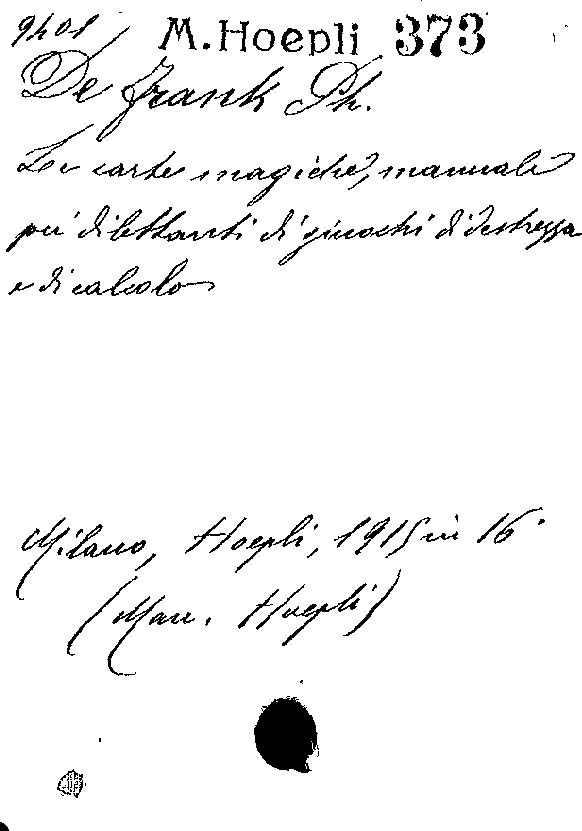 9401 M.Hoepli 373
De Frank Ph.
Le carte magiche, manuale
per dilettanti di giuochi di destrezza
e di calcolo
Milano, Hoepli, 1915 in 16°
(Man. Hoepli)